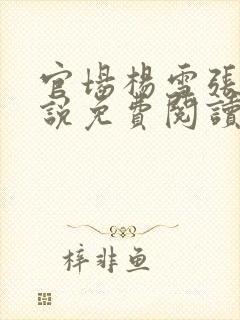 官場楊雪張
說免費閱讀
梓非魚